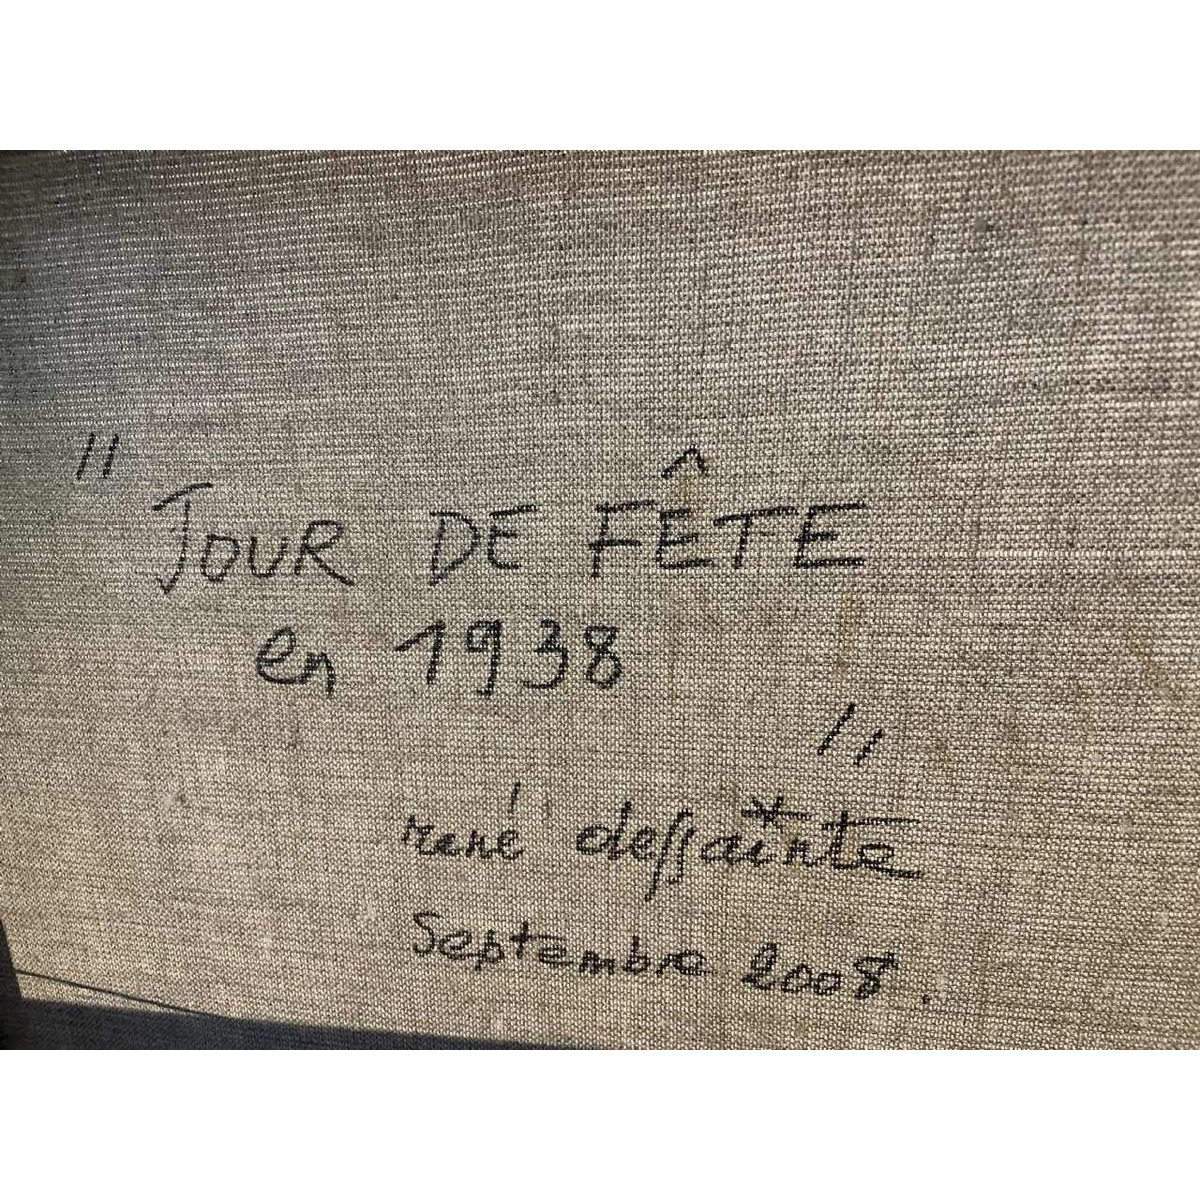 "
JOUR DE FÊTE
en 1938
"
rené dessainte
Septembre 2008.